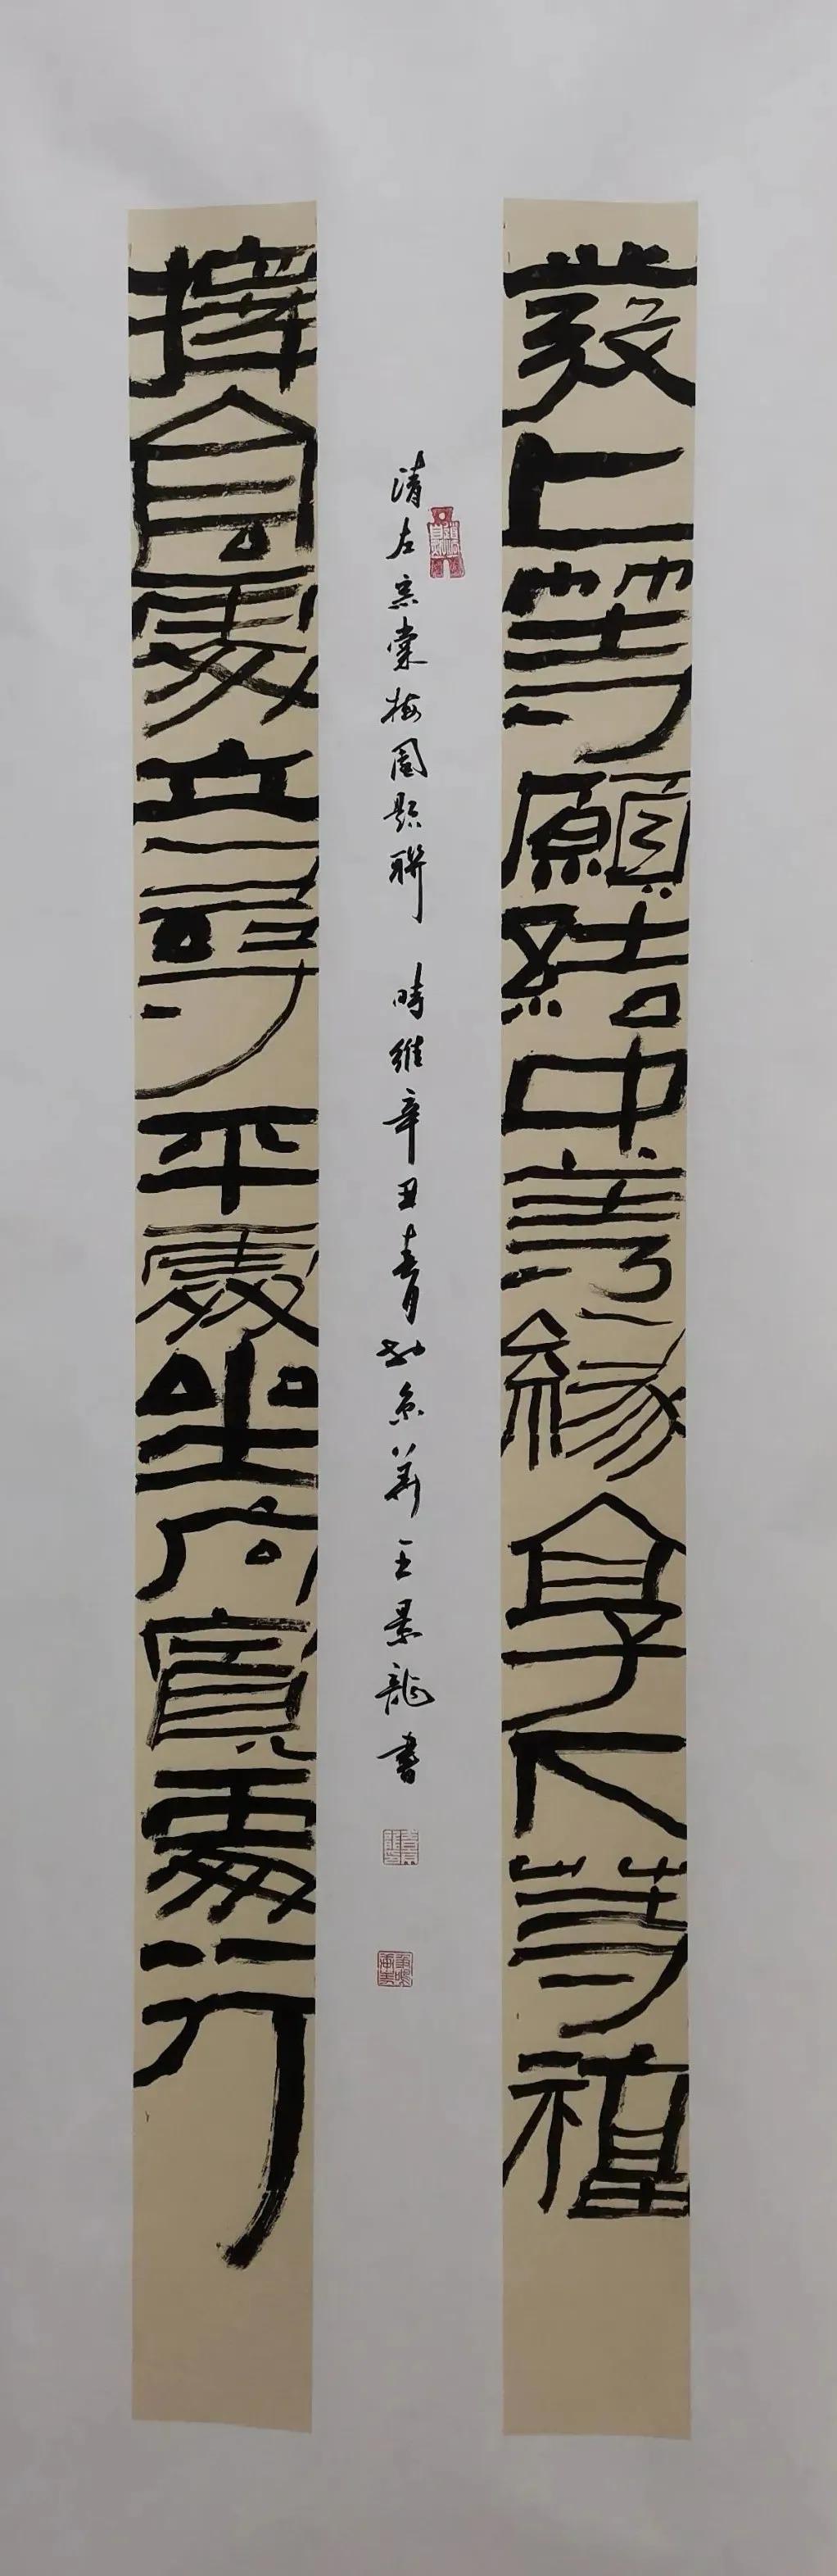 發上等願結中等緣享下等福
清左宗棠梅園題聯 時維辛丑春月於京華王景龍書
擇高處立尋平處坐向寬處行